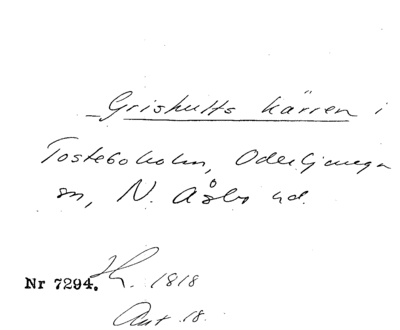 Grishults kärren i
Tosteboholm, Odeljunga
sn, N. Åsbo hd.
Nr 7294. H. 1818
Ant 18.